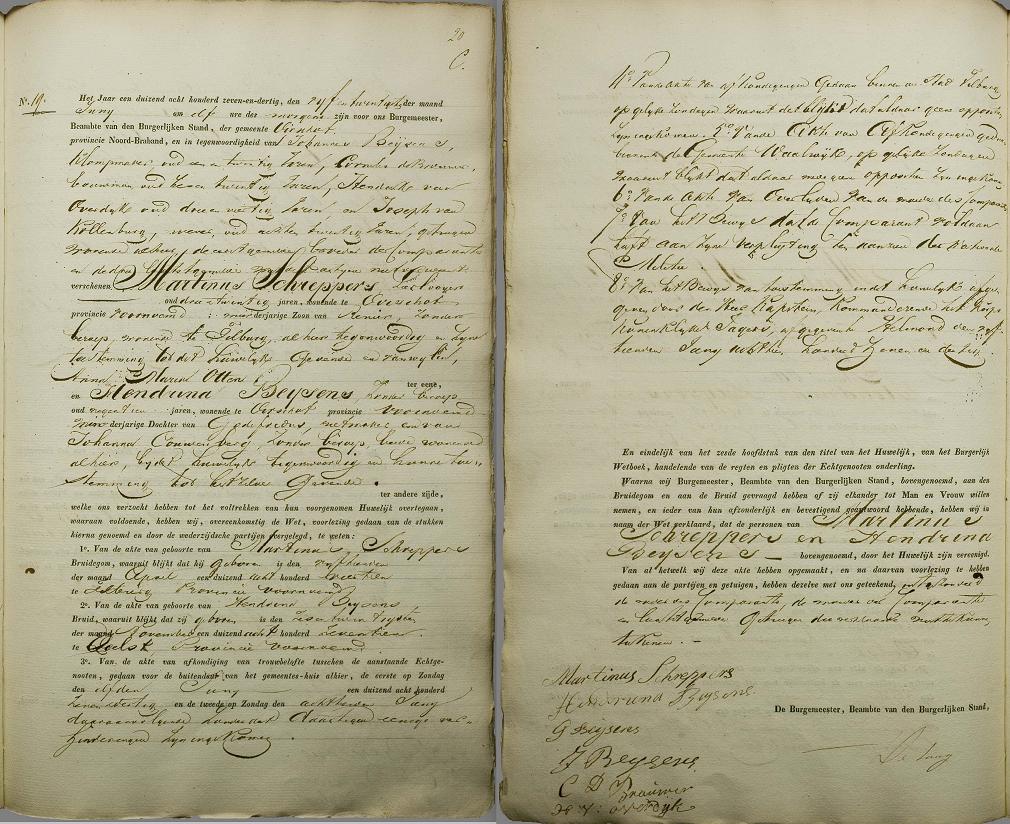 20
C.
N. 19.
Het Jaar een duizend acht honderd zeven-en-dertig, den vyf en twintigste der maand
Juny om elf ure des morgens zijn voor ons Burgemeester,
Beambte van den Burgerlijken Stand, der gemeente Oirschot,
provincie Noord-Braband, en in tegenwoordigheid van Johannes Beijsens,
klompmaker, oud een en twintig Jaren, Cornelis de Brouwer,
bouwman oud zeven twintig Jaren, Hendrikus van
Overdijk oud drie en veertig Jaren, en Joseph van
Kollenburg, wever, oud achten twintig Jaren, getuigen
wonende alhier, de eerstgenoemde broeder der Comparante
en de drie
verschenen Martinus Schreppers,
oud drie en twintig jaren, wonende te Oirschot
provincie voornoemd, meerderjarige Zoon van Zonder
beroep, wonende te Tilburg, alhier tegenwoordig en zyne
toestemming tot dit huwelyk Gevende en van wylen,
Anna Maria Otten
ter eene,
en Hendrina Beysens, Zonder beroep
oud negentien jaren, wonende te Oirschot provincie voornoemd
minderjarige Dochter van Godefridus, en van
Johanna Couwenberg, Zonder beroep, beide wonende
alhier, by dit huwelyk tegenwoordig en hunne toe-
stemming tot het zelve Gevende.
ter andere zijde,
welke ons verzocht hebben tot het voltrekken van hun voorgenomen Huwelijk overtegaan,
waaraan voldoende, hebben wij, overeenkomstig de Wet, voorlezing gedaan van de stukken
hierna genoemd en door de wederzijdsche partijen overgelegd, te weten:
1°. Van de akte van geboorte van Martinus Schreppers
Bruidegom, waaruit blijkt dat hij geboren is den vyftienden
der maand April een duizend acht honderd veertien
te Tilburg Provincie voornoemd
2°. Van de akte van geboorte van Hendrina Beysens
Bruid, waaruit blijkt dat zij geboren is den
der maand November een duizend acht honderd zeventien
te Provincie voornoemd.
3°. Van de akte van afkondiging van trouwbelofte tusschen de aanstaande Echtge-
nooten, gedaan voor de buitendeur van het gemeentes-huis alhier, de eerste op Zondag
den elfden Juny een duizend acht honderd
zevenendertig en de tweede op Zondag den achttienden Juny
daaraanvolgende zonder dat daartegen eenige ver-
hinderingen zyn ingekomen.
4° Van acte van afkondigingen Gedaan binnen de Stad Tilburg,
op gelyke Zondagen waaruit blykt dat aldaar geen oppositie
zyn ingekomen. 5° Van de Akte van Afkondigingen gedaan
binnen de Gemeente Waalwyk, op gelyke Zondagen
waaruit blykt dat aldaar mede geen oppositie zyn ingekomen
6° Van de akte van Overlyden van de moeder des Comparants
7° Van het Bewys dat de Comparant voldaan
heeft aan zyne verpligting ten aanzien der Nationale
Militie.
8° Van het Bewys van toestemming in dit huwelyk afge-
geven door den Heer Kapitein, Kommanderende het Korps
Koninklyke Jagers, afgegeven Helmond den vyf-
tienden Juny achttien honderd Zeven en dertig.
En eindelijk van het zesde hoofdstuk van den titel van het Huwelijk, van het Burgerlijk
Wetboek, handelende van de regten en pligten der Echtgenooten onderling.
Waarna wij Burgemeester, Beambte van den Burgerlijken Stand, bovengenoemd, aan des
Bruidegom en aan de Bruid gevraagd hebben of zij elkander tot Man en Vrouw willen
nemen, en ieder van hun afzonderlijk en bevestigend geantwoord hebbende, hebben wij in
naam der Wet verklaard, dat de personen van Martinus
Schreppers en Hendrina
Beysens — bovengenoemd, door het Huwelijk zijn vereenigd.
Van al hetwelk wij deze akte hebben opgemaakt, en na daarvan voorlezing te hebben
gedaan aan de partijen en getuigen, hebben dezelve met ons geteekend, uitgezonderd
de vader des Comparants, de moeder der Comparante
en laatstgenoemde Getuigen die verklaarde niet te kunnen
teekenen. —
Martinus Schreppers
Hendrina Beysens
G Beijsens
J Beysens
C D Brouwer
H V: overdyk
De Burgemeester, Beambte van den Burgerlijken Stand,